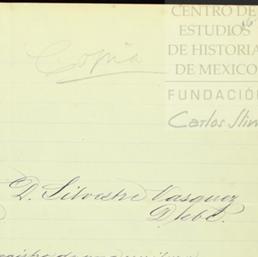 CENTRO DE
ESTUDIOS
DE HISTORIA
DE MEXICO
FUNDACIÓN
Carlos Slim
Copia
D. Silvestre Vasquez
Debe.